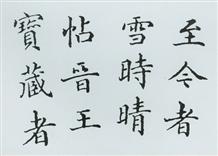 至今者
雪時晴
帖晉王
寶藏者